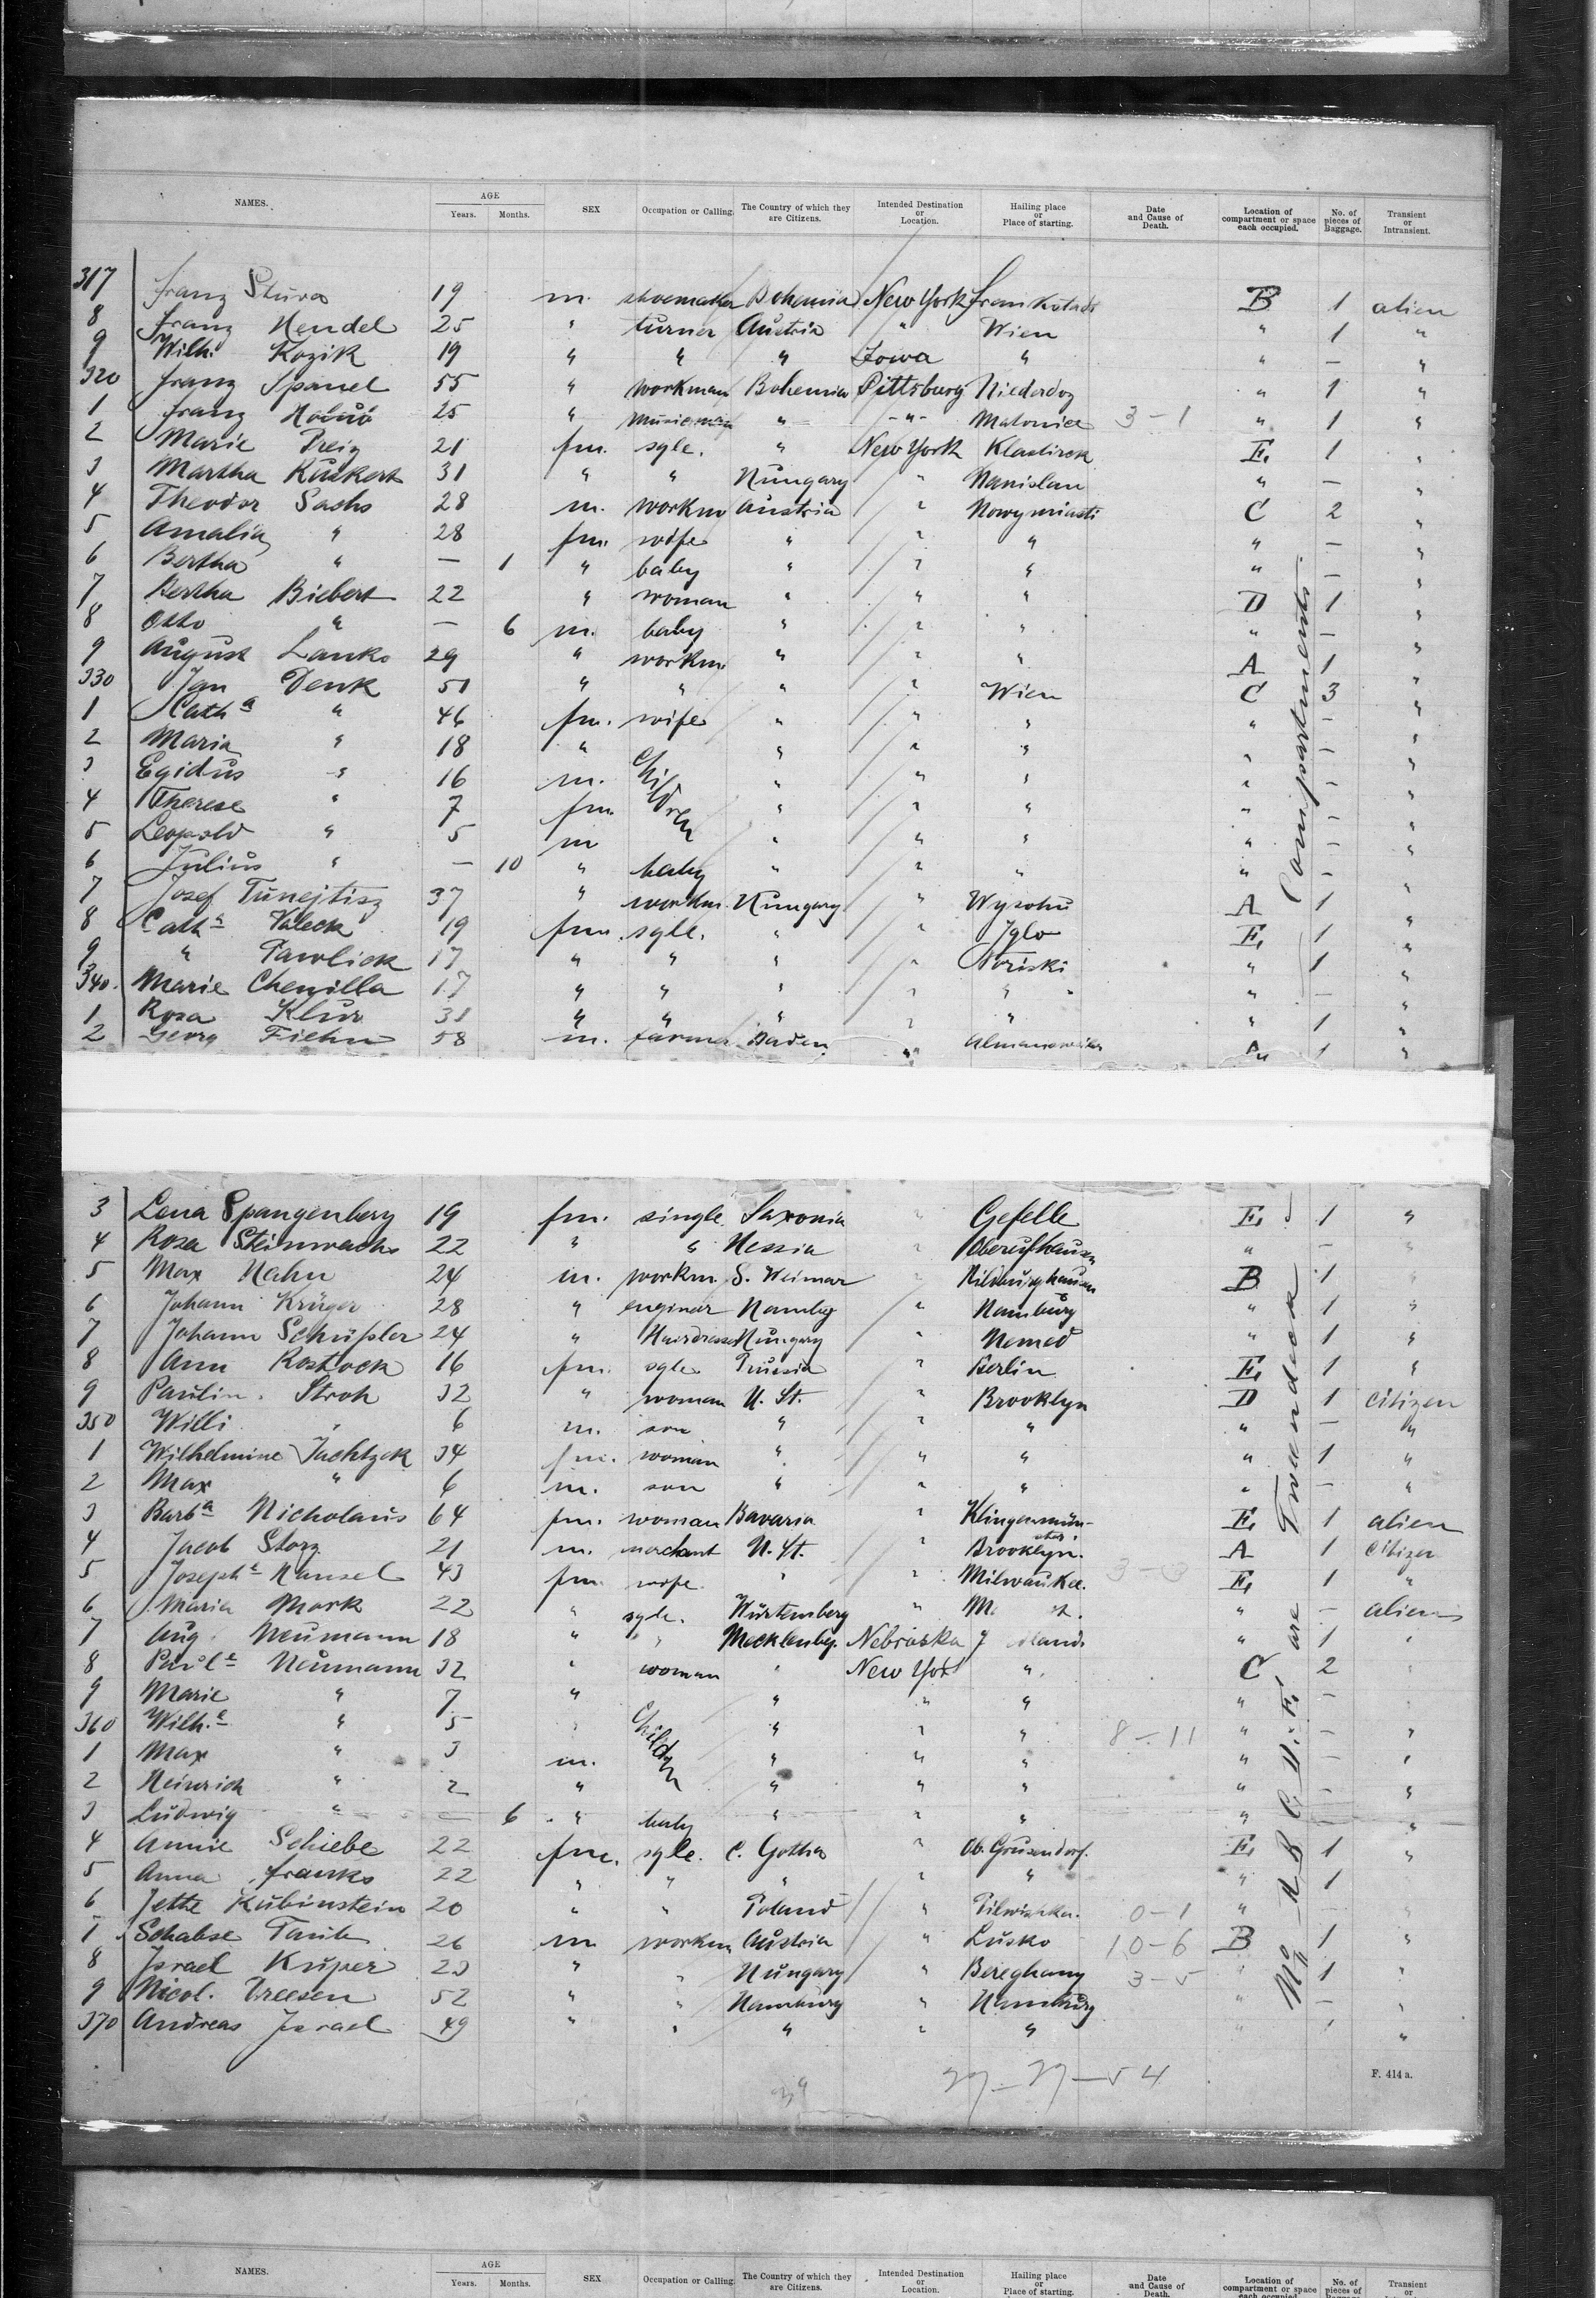 NAMES. AGE Years. Months. SEX Occupation or Calling. The Country of which they are Citizens. Intended Destination or Location. Hailing place or Place of starting. Date and Cause of Death. Location of compartment or space each occupied. No. of pieces of Baggage. Transient or Intransient.
317 Franz 19 m. shoemaker Bohemia New York Frankstadt B 1 alien
8 Franz Hendel 25 " turner Austria " Wien " 1 "
9 Wilh. Kozik 19 " " " Iowa " " — "
320 Franz Spanel 55 " workman Bohemia Pittsburg " 1 "
1 Franz 25 " " -"- 3-1 " 1 "
2 Marie 21 fm. sgle. " New York E. 1 "
3 Martha Kuskert 31 " " Hungary " " — "
4 Theodor Sachs 28 m. workm Austria " C 2 "
5 Amalia " 28 fm. wife " " " " — "
6 Bertha " — 1 " baby " " " " — "
7 Bertha Biebert 22 " woman " " " D 1 "
8 Otto " — 6 m. baby " " " " — "
9 August Lanko 29 " workm. " " " A 1 "
330 Jan Denk 51 " " " " Wien C 3 "
1 Cath a " 46 fm. wife " " " " — "
2 Maria " 18 " children " " " " — "
3 Egidus " 16 m. " " " " — "
4 Therese " 7 fm. " " " " — "
5 Leopold " 5 m " " " " — "
6 Julius " — 10 " baby " " " " — "
7 Josef Tunejtisz 37 " workm. Hungary " A 1 "
8 Cath a Valeck 19 fm. sgle. " " Iglo E. 1 "
9 " Pawlick 17 " " " " Noriski " 1 "
340. Marie Chemilla 17 " " " " " " — "
1 Rosa Klur 31 " " " " " " 1 "
2 Georg Fiehn 58 m. farmer Baden " A 1 "
3 Lena Spangenberg 19 fm. single Saxonia " Gefelle E. 1 "
4 Rosa Steinwachs 22 " " Hessia " " — "
5 Max Hahn 24 m. workm. S. Weimar " Hildburghausen B 1 "
6 Johann Krüger 28 " enginer Hambg " Hamburg " 1 "
7 Johann Schüssler 24 " Hairdresser Hungary " Nemed " 1 "
8 Ann Rostock 16 fm. sgle Prussia " Berlin E. 1 "
9 Paulin. Stroh 32 " woman U. St. " Brooklyn D 1 citizen
350 Willi " 6 m. son " " " " — "
1 Wilhelmine Jachtzek 34 fm. woman " " " " 1 "
2 Max " 6 m. son " " " " — "
3 Barb a Nicholaus 64 fm. woman Bavaria " Klingenmün- ster. E. 1 alien
4 Jacob Storz 21 m. merchant U. St. " Brooklyn. A 1 citizen
5 Joseph e Hansel 43 fm. wife " " Milwaukee. 3- E. 1 "
6 Maria Mork 22 " sgle. Würtemberg " " — alien
7 Aug. Neumann 18 " " Mecklenbg. Nebraska " 1 "
8 Paul e Neumann 32 " woman " New York " C 2 "
9 Marie " 7 " children " " " " —
360 Wilh. e " 5 " " " " 8-11 " — "
1 Max " 3 m. " " " " — "
2 Heinrich " 2 " " " " " — "
3 Ludwig " — 6 " baby " " " " — "
4 Annie Schiebe 22 fm. sgle. C. Gotha " Ob. Grusendorf. E. 1 "
5 Anna Franks 22 " " " " " " 1
6 Jette Rubinstein 20 " " Poland " 0-1 " — "
7 Schabse Taub 26 m workm Austria " Lusko 10-6 B 1 "
8 Israel Kuper 23 " " Hungary " Bereghany 3-5 " 1 "
9 Nicol. Dreesen 52 " " Hamburg " Hamburg " — "
370 Andreas Israel 49 " " " " " " 1 "
No II A B C D: E. are Twendeck Compartments.
F. 414 a.
NAMES. AGE Years. Months. SEX Occupation or Calling. The Country of which they are Citizens. Intended Destination or Location. Hailing place or Place of starting. Date and Cause of Death. Location of compartment or space each occupied. No. of pieces of Transient or